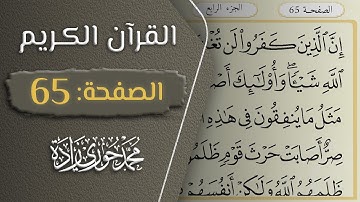 القرآن الكريم
الصفحة: 65
محمد حوري زاده
الصفحة 65
الجزء الرابع
إِنَّ الَّذِينَ كَفَرُوا لَن
اللَّهِ شَيْئًا وَأُولَٰئِكَ
مَثَلُ مَا يُنفِقُونَ فِي هَٰذِهِ
صِرٌّ أَصَابَتْ حَرْثَ قَوْمٍ
ظَلَمَهُمُ اللَّهُ وَلَٰكِنْ أَنفُسَهُمْ